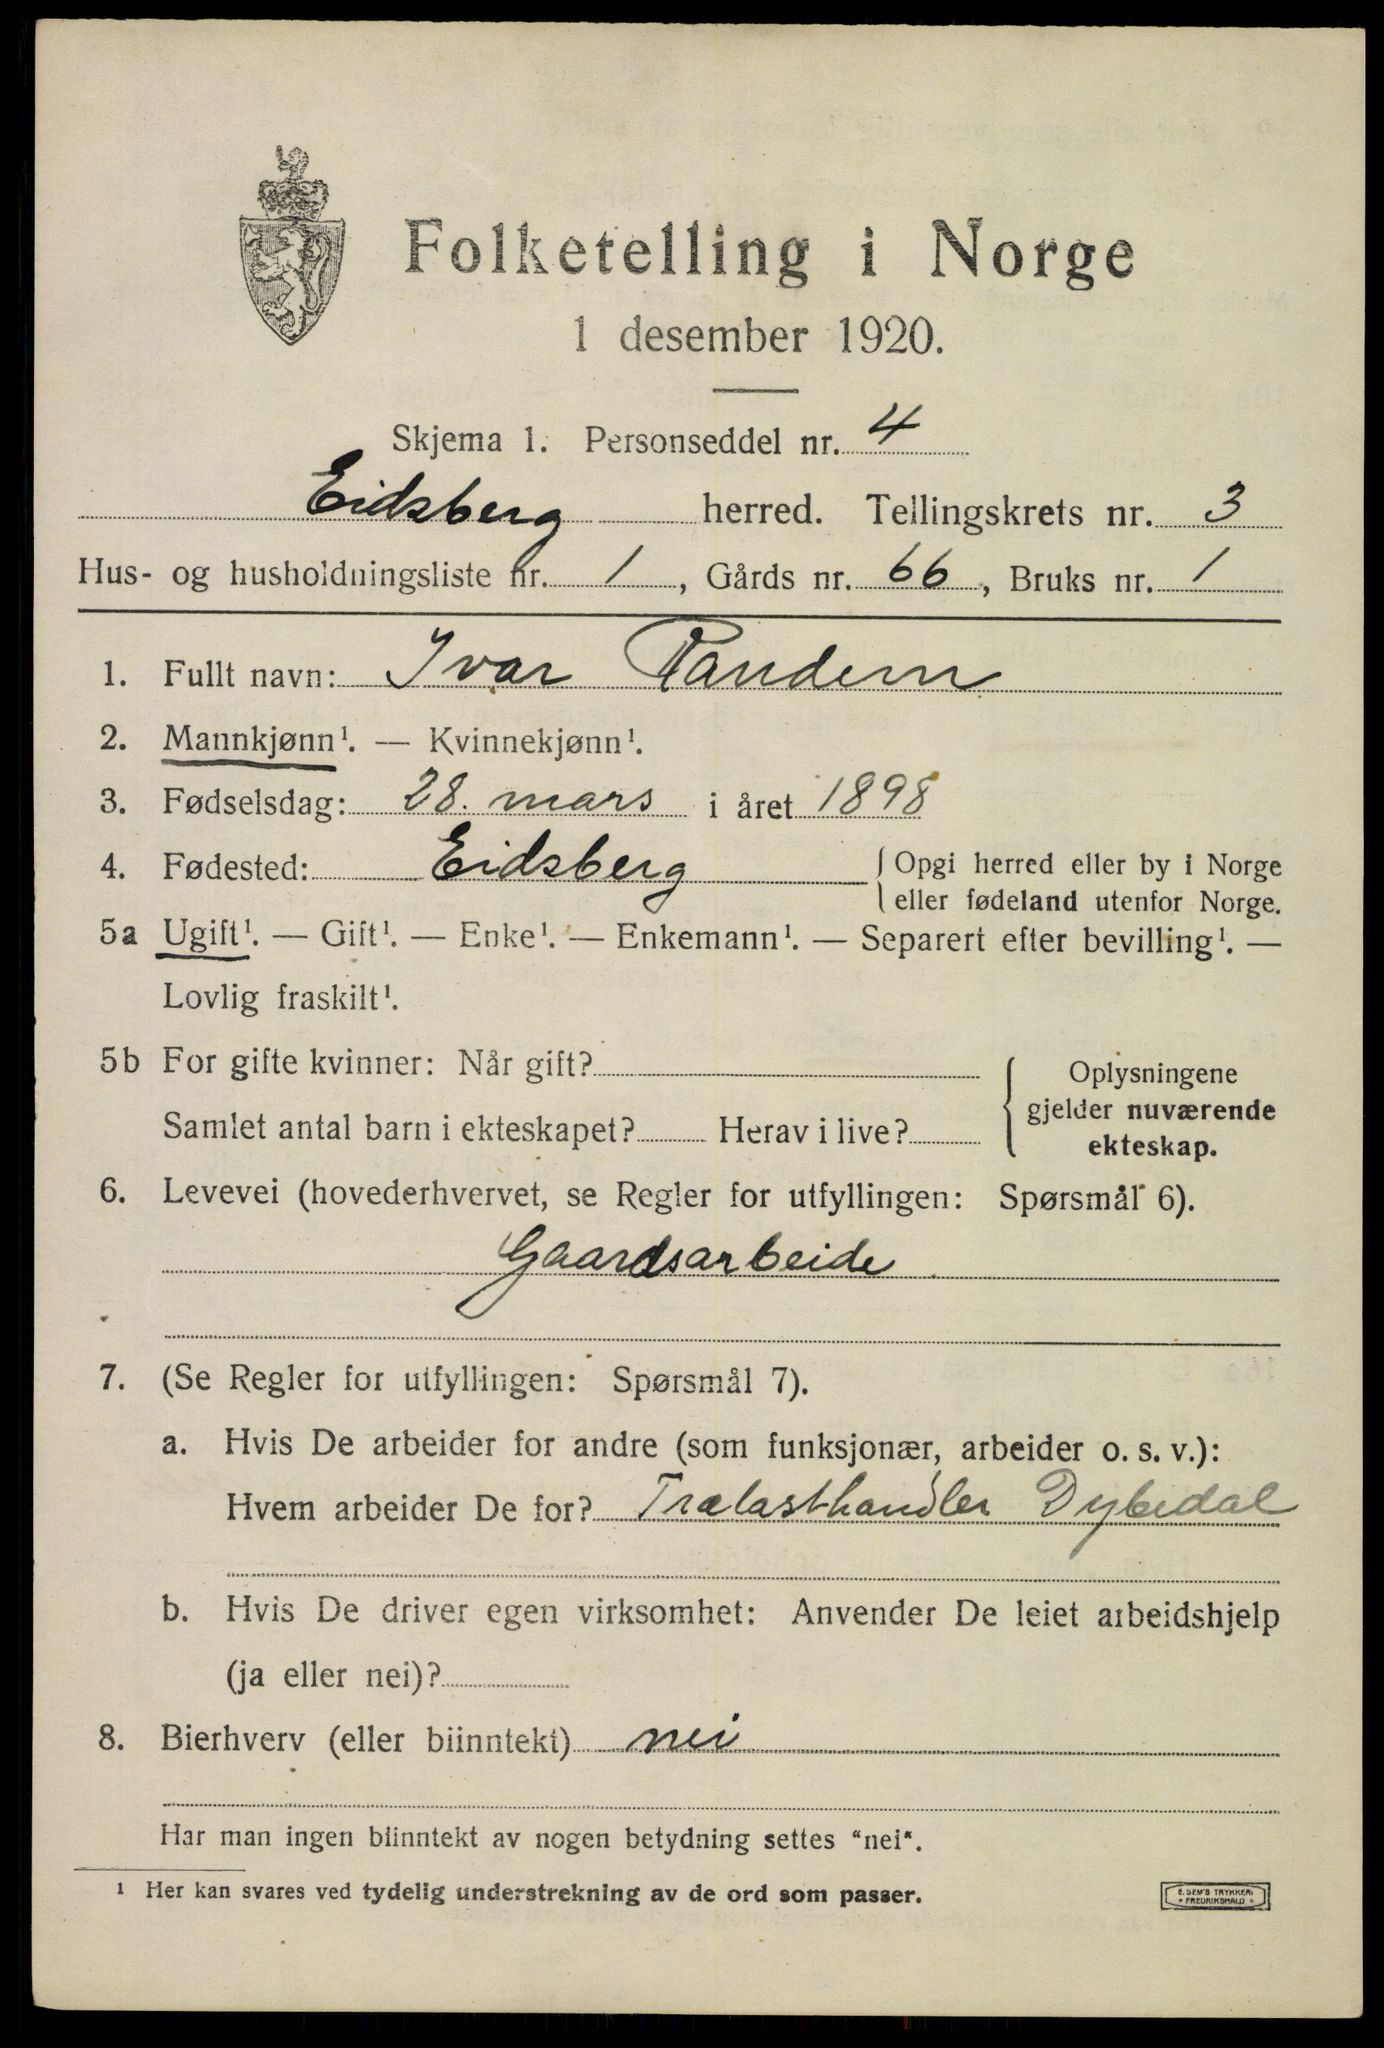 Folketelling i Norge
1 desember 1920.
Skjema 1. Personseddel nr. 4
Eidsberg herred. Tellingskrets nr. 3
Hus- og husholdningsliste nr. 1, Gårds nr. 66, Bruks nr. 1
1. Fullt navn: Ivar Randem
2. Mannkjønn¹. — Kvinnekjønn¹.
3. Fødselsdag: 28. mars i året 1898
4. Fødested: Eidsberg { Opgi herred eller by i Norge
eller fødeland utenfor Norge.
5a Ugift¹. — Gift¹. — Enke¹. — Enkemann¹. — Separert efter bevilling¹. —
Lovlig fraskilt¹.
5b For gifte kvinner: Når gift?
Samlet antal barn i ekteskapet? Herav i live?
Oplysningene
gjelder nuværende
ekteskap.
6. Levevei (hovederhvervet, se Regler for utfyllingen: Spørsmål 6).
Gaardsarbeide
7. (Se Regler for utfyllingen: Spørsmål 7).
a. Hvis De arbeider for andre (som funksjonær, arbeider o. s. v.):
Hvem arbeider De for? Trælasthandler Dybedal
b. Hvis De driver egen virksomhet: Anvender De leiet arbeidshjelp
(ja eller nei)?
8. Bierhverv (eller biinntekt) nei
Har man ingen biinntekt av nogen betydning settes "nei".
¹ Her kan svares ved tydelig understrekning av de ord som passer.
E. SEM'S TRYKKERI
FREDRIKSHALD